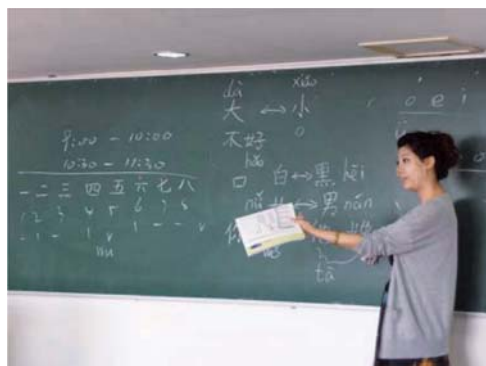 9:00 - 10:00
10:30 - 11:30
一 二 三 四 五 六 七 八
1 2 3 4 5 6 7 8
dà xiǎo
大 ↔ 小
不好
hǎo
口 白 ↔ 黑 hēi
nǚ ↔ 男 nán
你
tā
o e i
ü